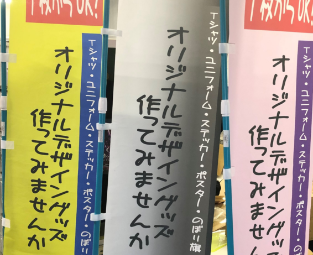 1枚からOK!
Tシャツ・ユニフォーム・ステッカー・ポスター・
オリジナルデザイングッズ
作ってみませんか
Tシャツ・ユニフォーム・ステッカー・ポスター・のぼり旗
オリジナルデザイングッズ
作ってみませんか
1枚からOK!
Tシャツ・ユニフォーム・ステッカー・ポスター・のぼり
オリジナルデザイングッズ
作ってみませんか